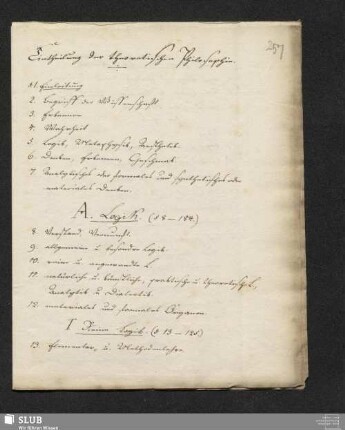 Eintheilung der theoretischen Philosophie
257
1. Einleitung
2. Begriff der Wissenschaft
3. Erkennen
4. Wahrheit
5. Logik, Metaphysik, Aesthetik
6. Denken, Erkennen, Geschmack
7. Analytisches oder formales und synthetisches oder
materiales Denken.
A. Logik. (§ 8 – 184)
8. Verstand. Vernunft.
9. allgemeine u besondre Logik
10. reine u angewandte L.
11. natürliche u. künstliche, praktische u theoretische L.
Analytik u Dialectik.
12. materiales und formales Organon
I Reine Logik (§ 13 –
13. Elementar- u. Methodenlehre.
SLUB
Wir führen Wissen.